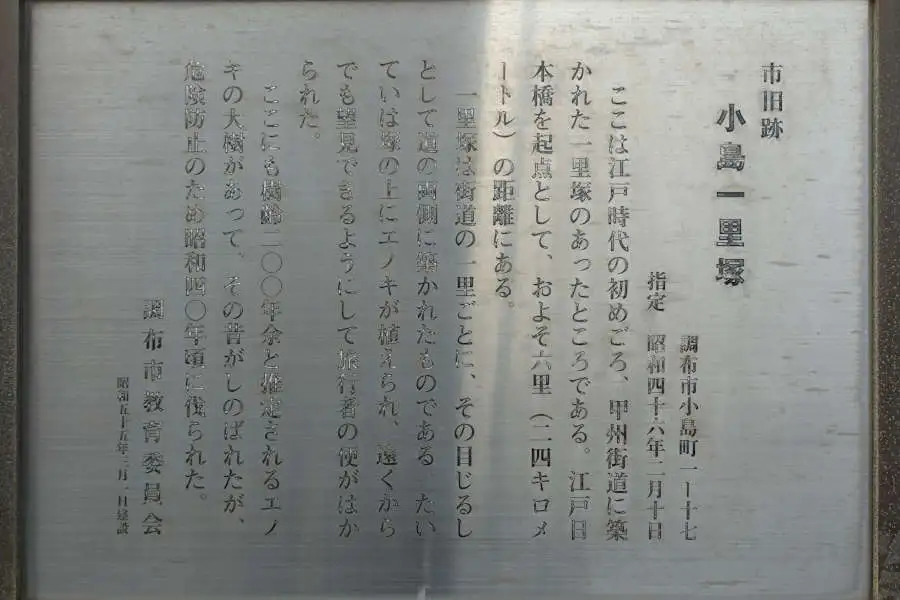 市旧跡
小島一里塚
調布市小島町一ー十七
指定　昭和四十六年二月十日
ここは江戸時代の初めごろ、甲州街道に築
かれた一里塚のあったところである。江戸日
本橋を起点として、およそ六里（二四キロメ
ートル）の距離にある。
一里塚は街道の一里ごとに、その目じるし
として道の両側に築かれたものである　たい
ていは塚の上にエノキが植えられ、遠くから
でも望見できるようにして旅行者の便がはか
られた。
ここにも樹齢二〇〇年余と推定されるエノ
キの大樹があって、その昔がしのばれたが、
危険防止のため昭和四〇年頃に伐られた。
調布市教育委員会
昭和五十五年三月一日建設